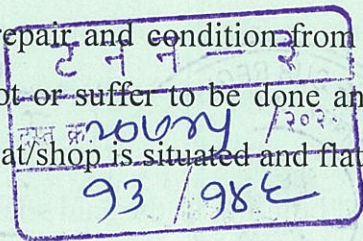 repair and condition from
ट न न - ३
ot or suffer to be done an
दस्त क्र. २०७२५ / २०२
at/shop is situated and flat
९३ / ९४६